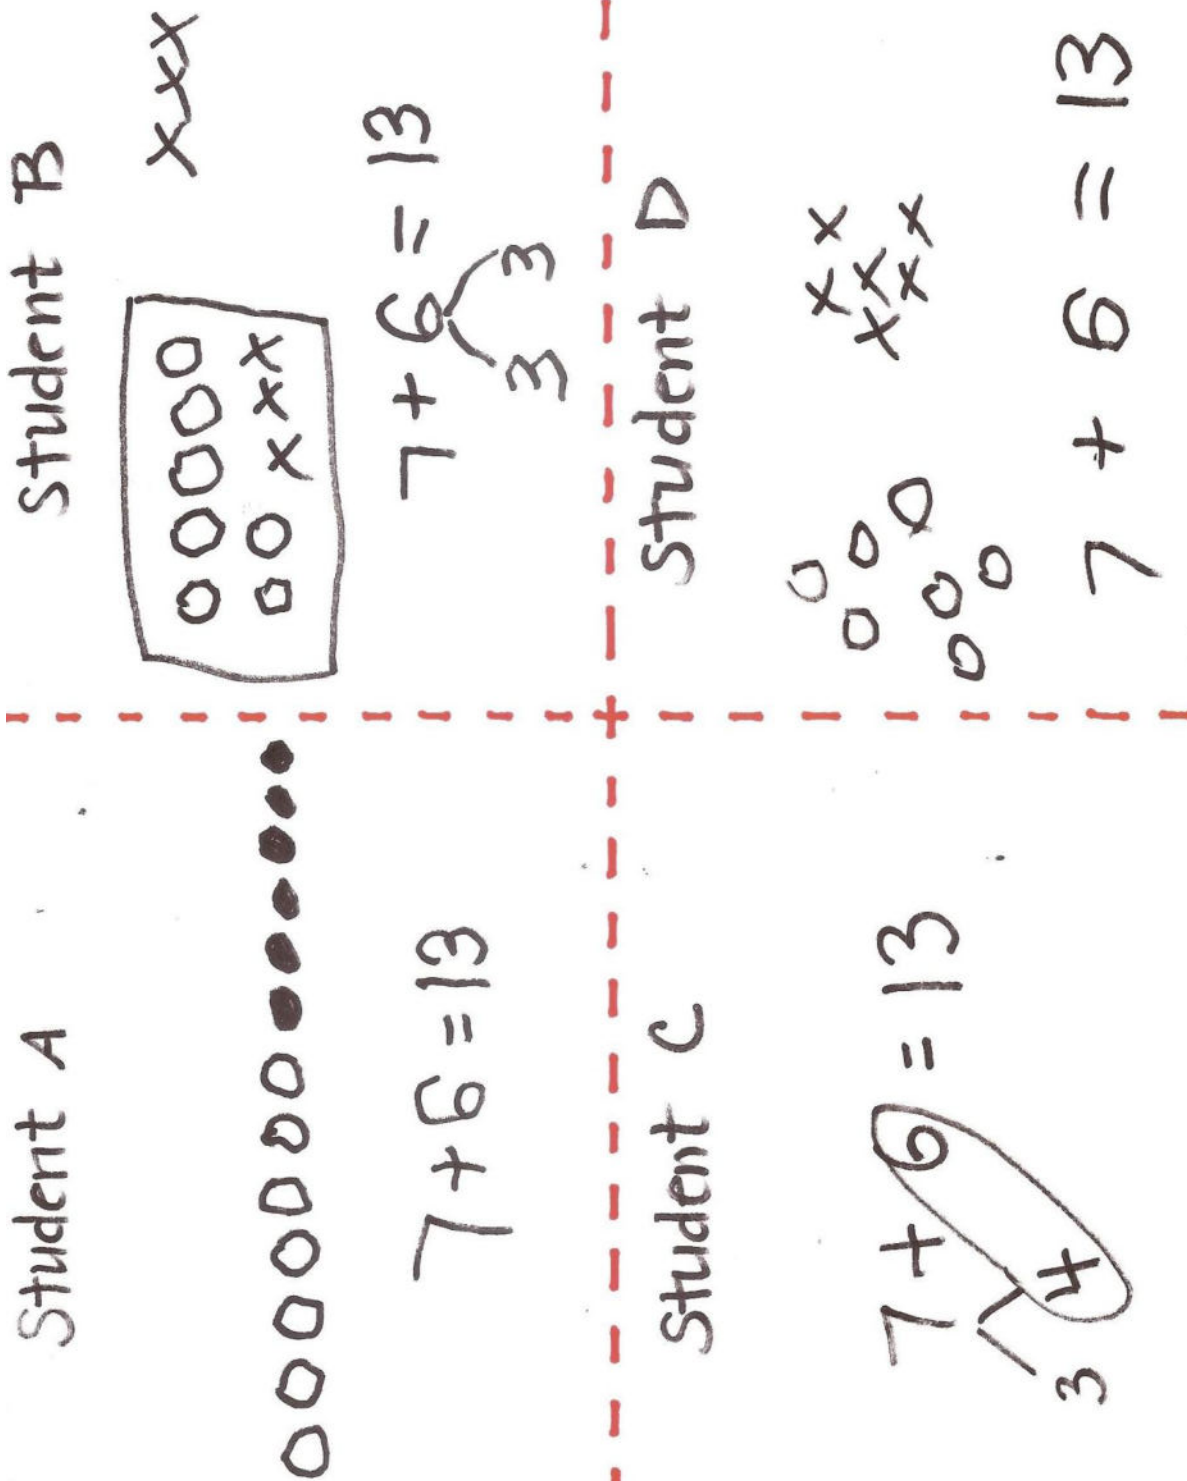 Student A
7 + 6 = 13
Student B
xxx
7 + 6 = 13
3 3
Student C
7 + 6 = 13
3 4
Student D
7 + 6 = 13